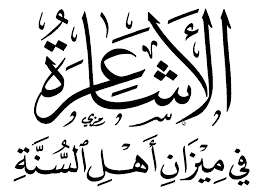 الأشاعرة
في ميزان أهل السنة